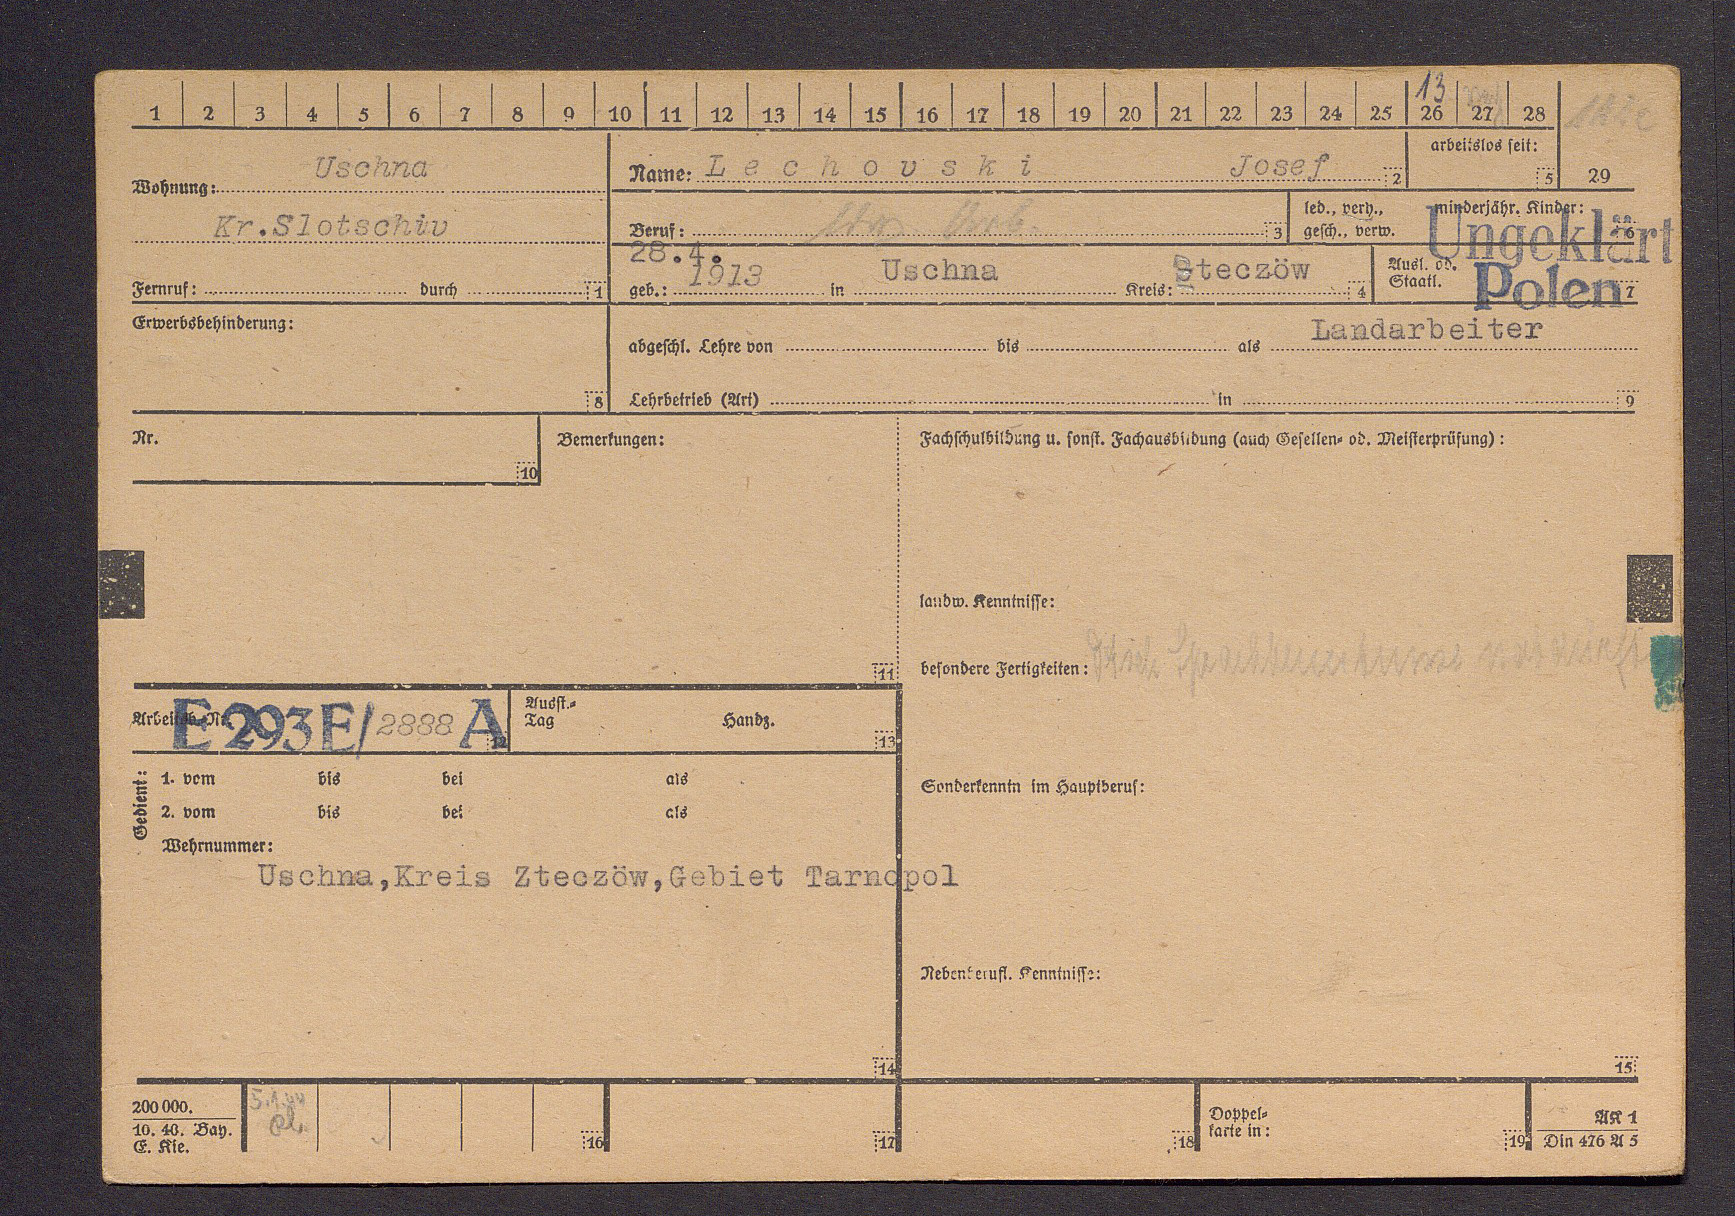 1 2 3 4 5 6 7 8 9 10 11 12 13 14 15 16 17 18 19 20 21 22 23 24 25 26 27 28
13
Wohnung: Uschna
Kr.Slotschiv
Fernruf: durch 1
Name: Lechovski Josef 2
arbeitslos seit: 5
29
Beruf: 3
led., verh., gesch., verw.
minderjähr. Kinder: 6
Ungeklärt
28.4.
geb.: 1913 in Uschna Kreis: Steczöw 4
Ausl. od. Staatl. Polen 7
Erwerbsbehinderung: 8
abgeschl. Lehre von bis als Landarbeiter
Lehrbetrieb (Art) in 9
Nr. 10
Bemerkungen: 11
Fachschulbildung u. sonst. Fachausbildung (auch Gesellen- od. Meisterprüfung) :
landw. Kenntnisse:
besondere Fertigkeiten:
Arbeitsb.-Nr. E 293 E/2888 A 12
Ausst.-Tag Handz. 13
Gedient:
1. vom bis bei als
2. vom bis bei als
Wehrnummer:
Uschna,Kreis Zteczöw,Gebiet Tarnopol
14
Sonderkenntn im Hauptberuf:
Nebenberufl. Kenntnisse:
15
200 000.
10. 40. Bay.
E. Kie.
5.1.44
16
17
18
Doppel-
karte in: 19
AK 1
Din 476 A 5